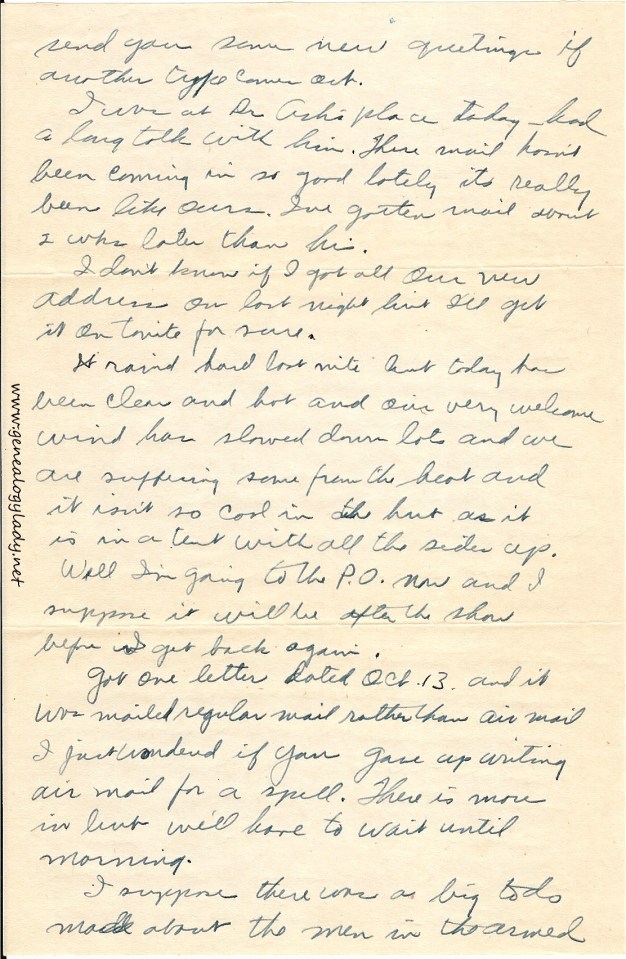 send you some new greetings if
another type comes out.
I was at Dr Ash's place today – had
a long talk with him. There mail hasn't
been coming in so good lately its really
been like ours. I've gotten mail about
2 wks later than his.
I don't know if I got all our new
address on last night but I'll get
it on tonite for sure.
It raind hard last nite but today has
been clear and hot and our very welcome
wind has slowed down lots and we
are suffering some from the heat and
it isn't so cool in the hut as it
is in a tent with all the sides up.
Well I'm going to the P.O. now and I
suppose it will be after the show
before I get back again.
Got one letter dated Oct. 13. and it
was mailed regular mail rather than air mail
I just wondered if you gave up writing
air mail for a spell. There is more
in but we'll have to wait until
morning.
I suppose there was a big todo
made about the men in the armed
www.genealogylady.net